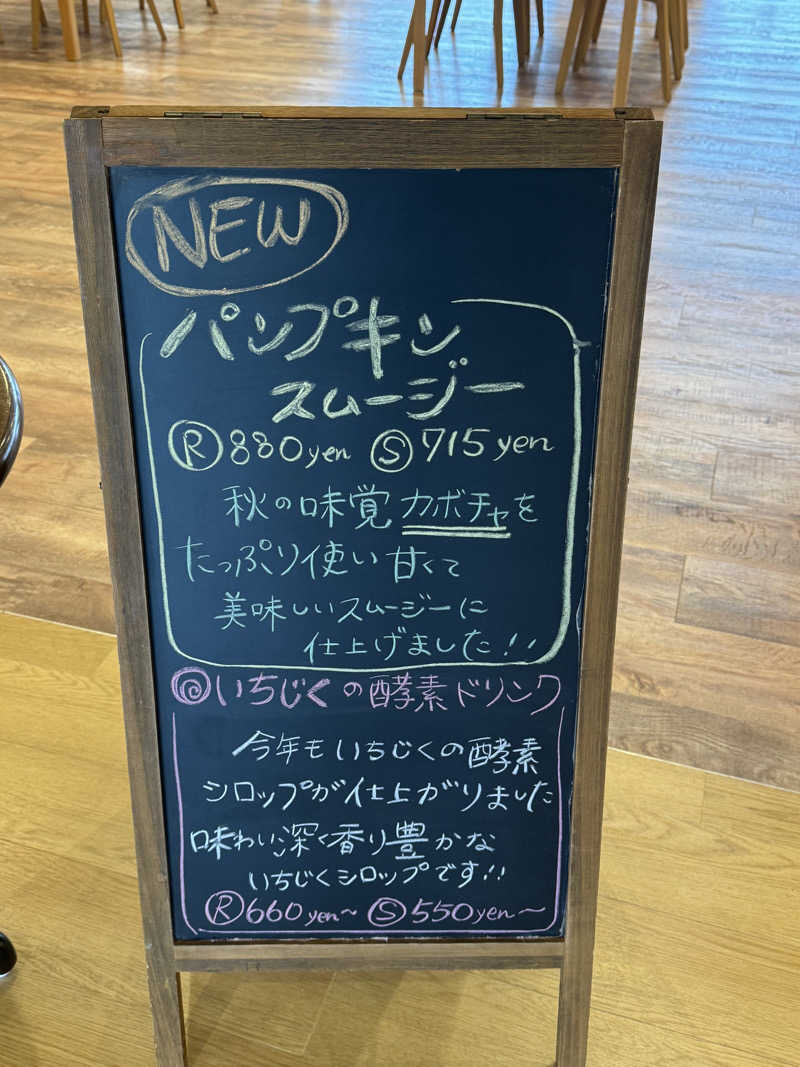 NEW
パンプキン
スムージー
Ⓡ880yen Ⓢ715yen
秋の味覚カボチャを
たっぷり使い甘くて
美味しいスムージーに
仕上げました!!
◎いちじくの酵素ドリンク
今年もいちじくの酵素
シロップが仕上がりました
味わい深く香り豊かな
いちじくシロップです!!
Ⓡ660yen～ Ⓢ550yen～